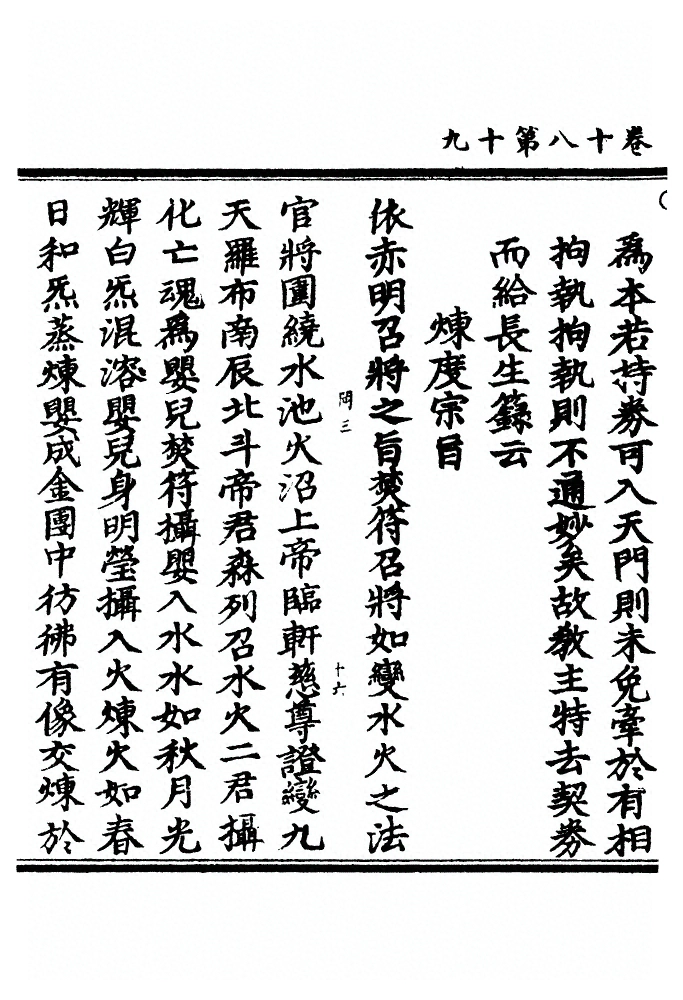 卷十八第十九
為本若持券可入天門則未免牽於有相
拘執拘執則不通妙矣故教主特去契券
而給長生籙云
煉度宗旨
依赤明召將之旨焚符召將如變水火之法
岡三
十六
官將圍繞水池火沼上帝臨軒慈尊證變九
天羅布南辰北斗帝君森列召水火二君攝
化亡魂為嬰兒焚符攝嬰入水水如秋月光
輝白炁混溶嬰兒身明瑩攝入火煉火如春
日和炁蒸煉嬰成金團中彷彿有像交煉於